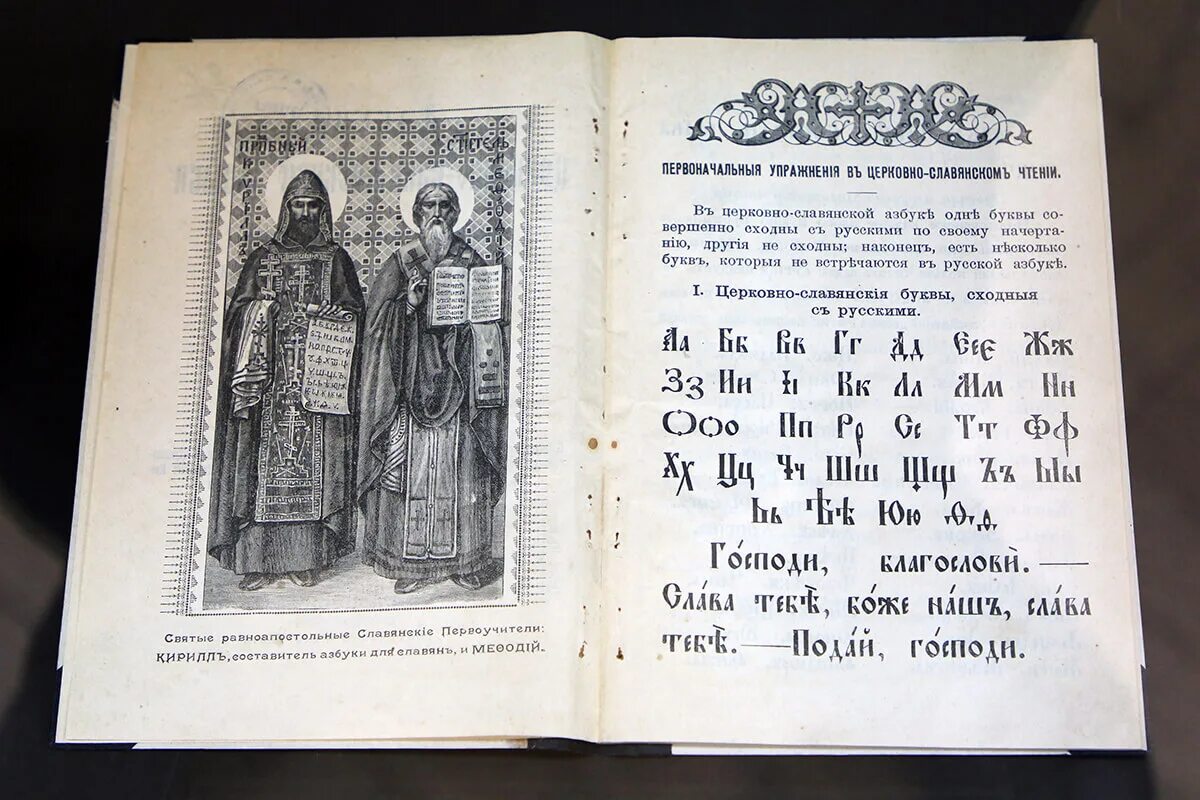 Святые равноапостольные Славянскіе Первоучители:
КИРИЛЛЪ, составитель азбуки для славян, и МЕѲОДІЙ.
ПЕРВОНАЧАЛЬНЫЯ УПРАЖНЕНІЯ ВЪ ЦЕРКОВНО-СЛАВЯНСКОМЪ ЧТЕНІИ.
Въ церковно-славянской азбукѣ однѣ буквы со-
вершенно сходны съ русскими по своему начерта-
нію, другія не сходны; наконецъ, есть нѣсколько
буквъ, которыя не встрѣчаются въ русской азбукѣ.
I. Церковно-славянскія буквы, сходныя
съ русскими.
Аа Бб Вв Гг Дд Ееє Жж
Зз Ии Ії Кк Лл Мм Нн
Ооо Пп Рр Сс Тт Фф
Хх Цц Чч Шш Щщ Ъъ Ыы
Ьь Ѣѣ Юю Ѳѳ
Го́споди, благослови̂. —
Сла́ва тебѣ̀, бо́же на́шъ, сла́ва
тебѣ̀. — Пода́й, го́споди.